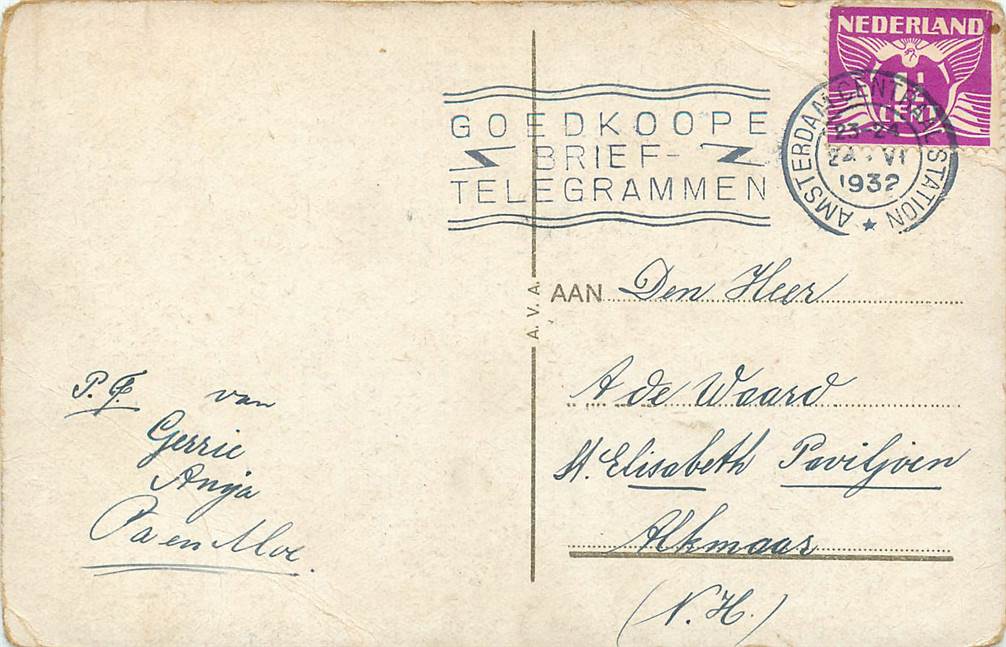 NEDERLAND
1½
CENT
AMSTERDAM CENTRAAL STATION
23-24
24 VI
1932
GOEDKOOPE
BRIEF-
TELEGRAMMEN
A.V.A.
AAN Den Heer
A de Waard
St. Elisabeth Paviljoen
Alkmaar
(N.H.)
P.F. van
Gerrie
Anja
Pa en Moe.